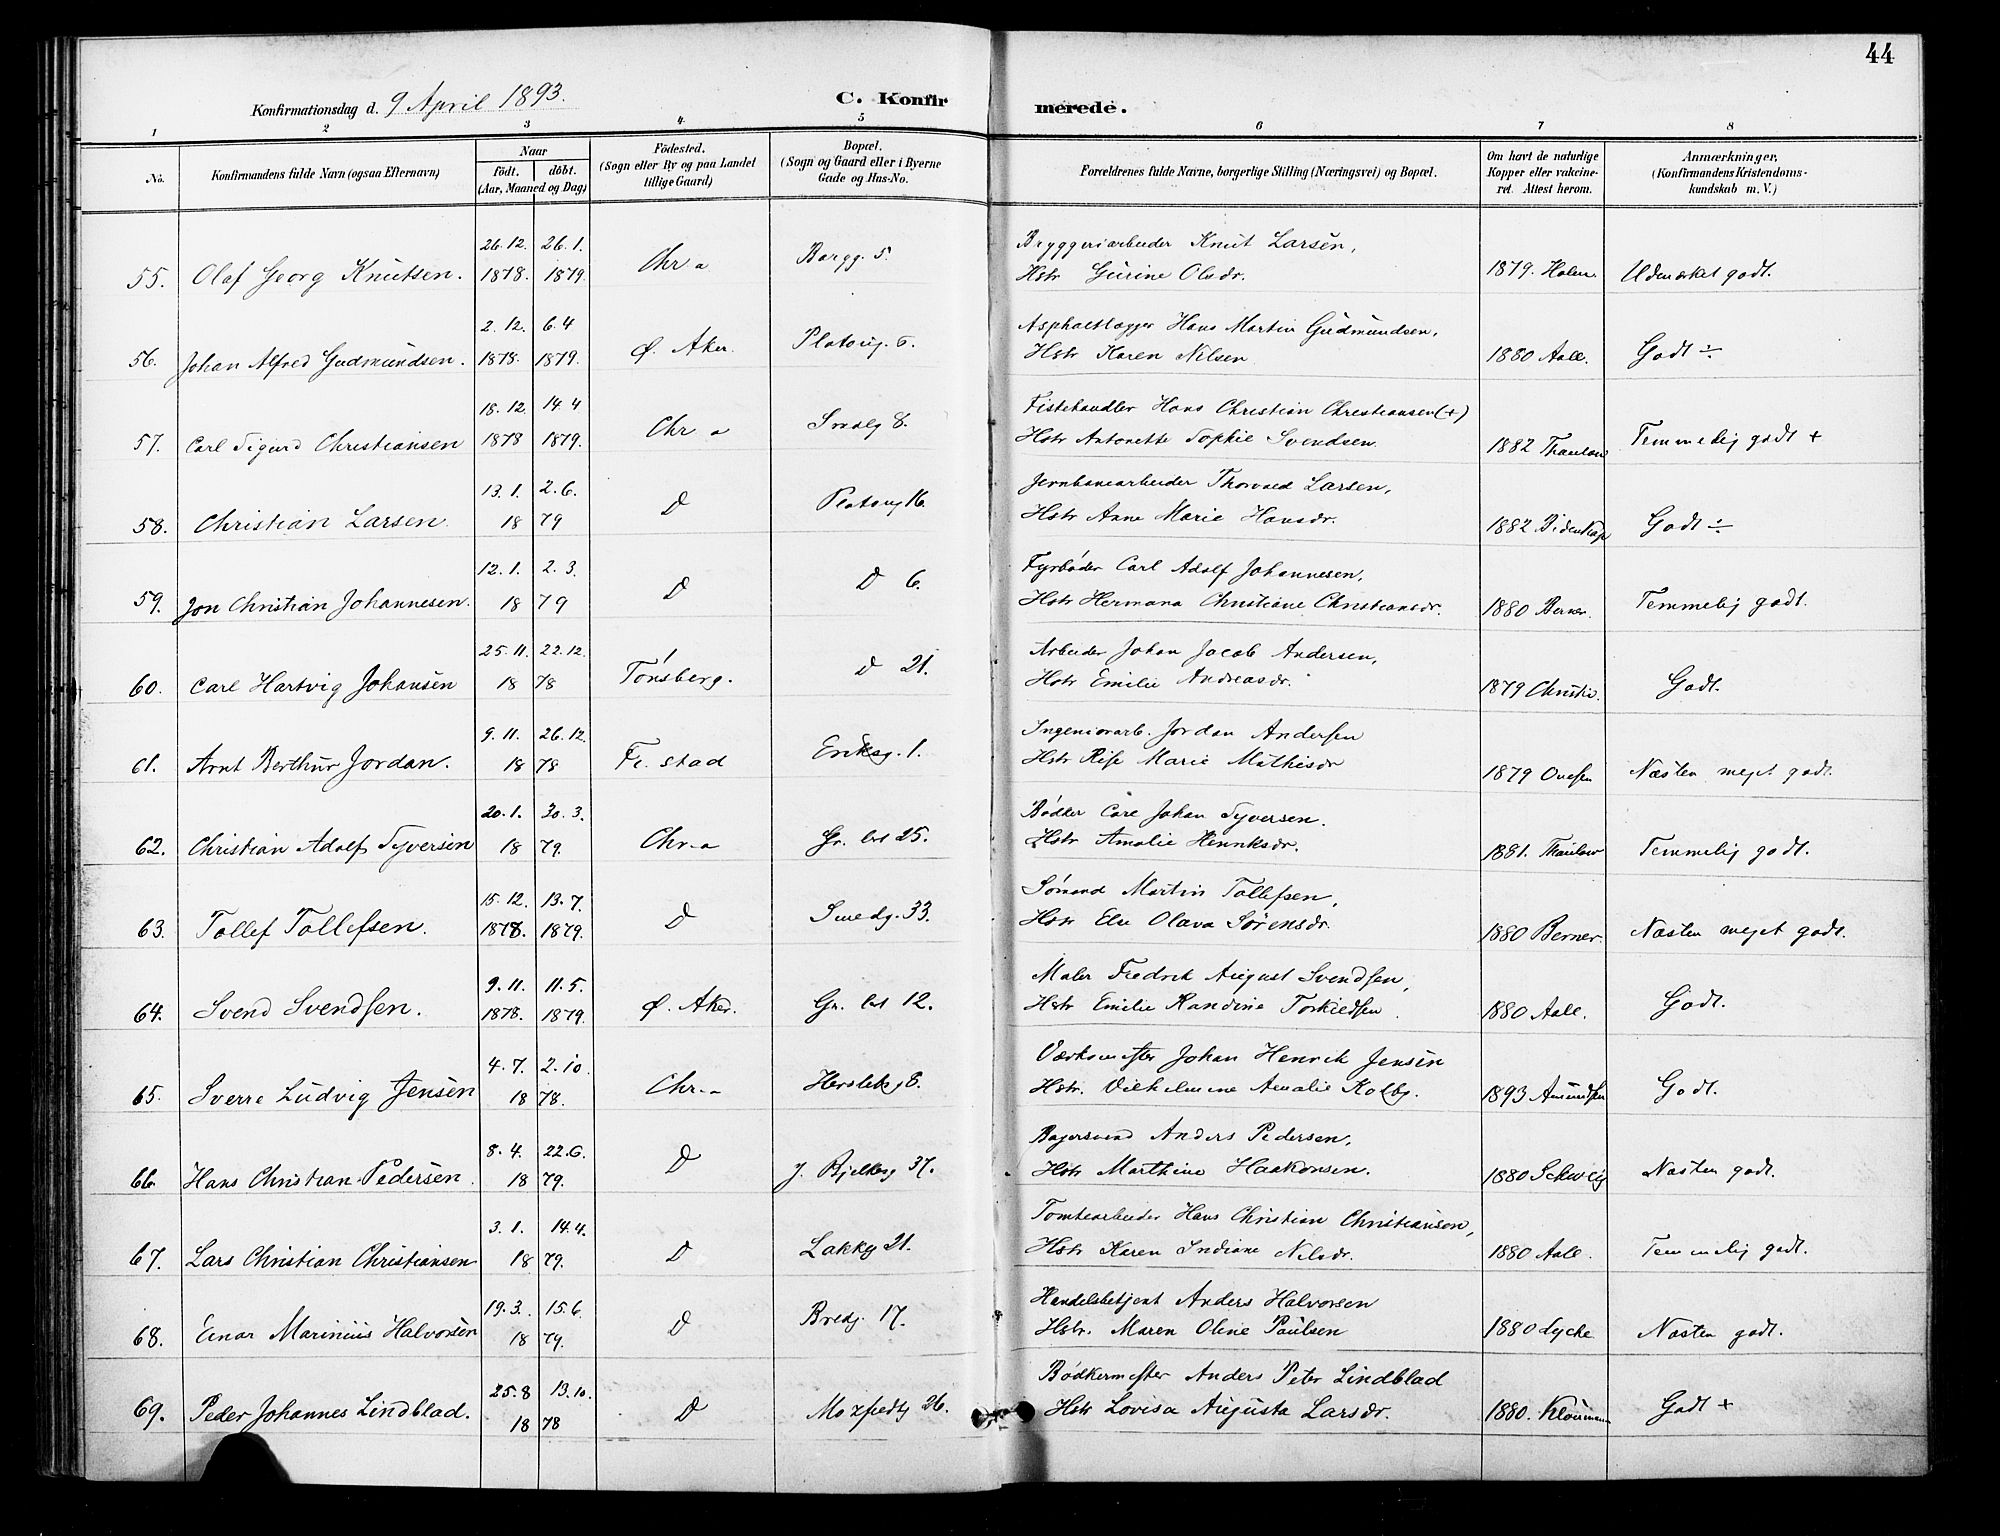 44
Konfirmationsdag d. 9 April 1893.
C. Konfir merede.
1 2 3 4. 5 6 7 8
No. Konfirmandens fulde Navn (ogsaa Efternavn) Naar födt. döbt. (Aar, Maaned og Dag) Födested. (Sogn eller By og paa Landet tillige Gaard) Bopæl. (Sogn og Gaard eller i Byerne Gade og Hus-No. Forældrenes fulde Navne, borgerlige Stilling (Næringsvei) og Bopæl. Om havt de naturlige Kopper eller vakcineret. Attest herom. Anmærkninger, (Konfirmandens Kristendomskundskab m. V.)
26.12. 26.1. Bryggeriarbeider Knut Larsen,
55. Olaf Georg Knutsen. 1878. 1879. Chr a Borgg. 5. Hstr Gurine Olsdr. 1879. Holm Udmærket godt.
2.12. 6.4 Asphaltlægger Hans Martin Gudmundsen,
56. Johan Alfred Gudmundsen. 1878. 1879. Ø. Aker. Platoug. 6. Hstr Karen Nilsen 1880 Aall. Godt ÷
18.12. 14.4 Fiskehandler Hans Christian Christiansen (+)
57. Carl Sigurd Christiansen 1878 1879. Chr a 8. Hstr Antonette Sophie Svendsen. 1882 Thaulow Temmelig godt +
13.1. 2.6. Jernbanearbeider Thorvald Larsen,
58. Christian Larsen. 18 79 D Platoug 16. Hstr Anne Marie Hansdr. 1882 Bidenkap Godt ÷
12.1. 2.3. Fyrbøder Carl Adolf Johannesen,
59. Jon Christian Johannesen. 18 79 D D 6. Hstr Hermana Christiane Christiansdr. 1880 Berner. Temmelig godt.
25.11. 22.12. Arbeider Johan Jacob Andersen,
60. Carl Hartvig Johansen 18 78 Tønsberg. D 21. Hstr Emilie Andreasdr. 1879 Christie. Godt.
9.11. 26.12. Ingeniorarb. Jordan Andersen
61. Arnt Berthur Jordan. 18 78 Fr. stad Eriksg. 1. Hstr Rise Marie Mathisdr 1879 Ovesen Næsten meget godt.
20.1. 30.3. Bødker Carl Johan Syversen.
62. Christian Adolf Syversen 18 79. Chr.a Gr. lert 25. Hstr Amalie Henriksdr. 1881. Thaulow Temmelig godt.
15.12. 13.7. Sømand Martin Tollefsen,
63. Tollef Tollefsen. 1878. 1879. D Smedg. 33. Hstr Else Olava Sørensdr. 1880 Berner. Næsten meget godt.
9.11. 11.5. Maler Fredrik August Svendsen,
64. Svend Svendsen. 1878. 1879. Ø. Aker. Gr. lert 12. Hstr Emilie Randine Torkildsen 1880 Aall. Godt.
4.7. 2.10. Værkmester Johan Henrik Jensen
65. Sverre Ludvig Jensen 18 78. Chr.a Herslebg 8. Hstr. Vilhelmine Amalie Kolby. 1893 Amundsen Godt.
8.4. 22.6. Bagersvend Anders Pedersen,
66. Hans Christian Pedersen 18 79. D J. Bjelkesg 37. Hstr Marthine Haakonsen. 1880 Schweig Næsten godt.
3.1. 14.4. Tomtearbeider Hans Christian Christiansen,
67. Lars Christian Christiansen 18 79. D Lakkeg 21. Hstr Karen Indiane Nilsdr. 1880 Aall. Temmelig godt.
19.3. 15.6. Handelsbetjent Anders Halvorsen
68. Einar Marinius Halvorsen 18 79. D Bredg. 17. Hstr. Maren Oline Paulsen 1880 Lyche Næsten godt.
25.8 13.10. Bødkermester Anders Peter Lindblad
69. Peder Johannes Lindblad. 18 78 D 26. Hstr Lovisa Augusta Larsdr. 1880. Kloumann Godt +